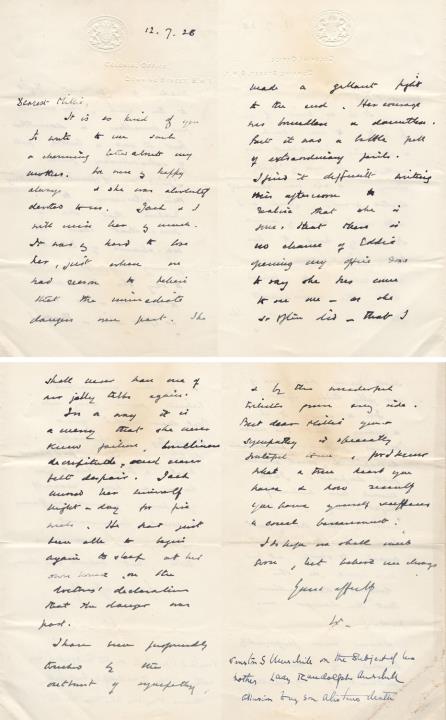 12.7.21
COLONIAL OFFICE
DOWNING STREET, S.W.1
Dearest Millie,
It is so kind of you
to write to me such
a charming letter about my
mother. We were vy happy
always & she was absolutely
devoted to us. Jack & I
will miss her vy much.
It was vy hard to lose
her, just when we
had reason to believe
that the immediate
danger were past. She
made a gallant fight
to the end. Her courage
was boundless &
But it was a battle full
of extraordinary perils.
I find it difficult writing
this afternoon to
realise that she is
gone, & that there is
no chance of Eddie
opening my office door
to say she has come
to see me – as she
so often did – & that I
shall never have one of
our jolly talks again.
In a way it is
a mercy that she never
knew failure, loneliness
decrepitude, and never
felt despair. Jack
nursed her himself
night & day for five
weeks. He had just
been able to begin
again to sleep at his
own house, on the
doctors' declaration
that the danger was
past.
I have been profoundly
touched by the
outburst of sympathy
& by the wonderful
tributes from every side.
Best dear Millie your
sympathy is sincerely
grateful to me, for I know
what a true heart you
have & how recently
you have yourself suffered
a cruel bereavement.
I do hope we shall meet
soon, but believe me always
Yours affectly
W–
Winston S Churchill on the subject of his
mother Lady Randolph Churchill
allusion to my son Alastair's death